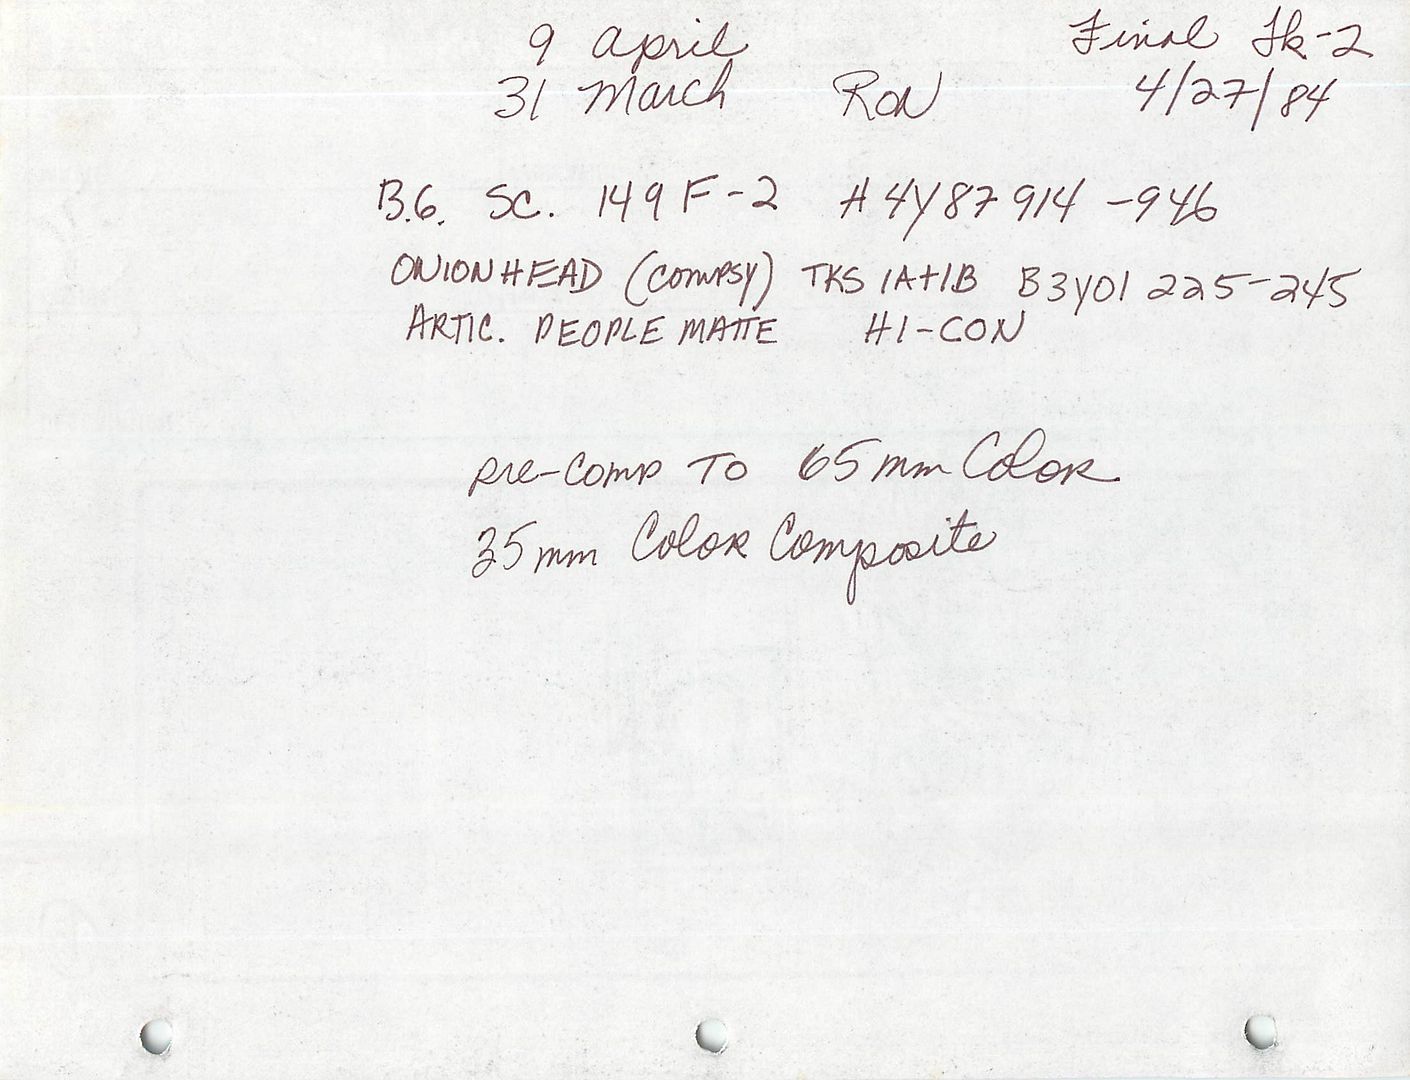 9 April Final Tk-2
31 March RON 4/27/84
B.G. SC. 149 F-2 # 4Y87 914 -946
ONIONHEAD (COMPSY) TKS 1A+1B B3Y01 225-245
ARTIC. PEOPLE MATTE HI-CON
Pre-Comp TO 65mm Color
35mm Color Composite